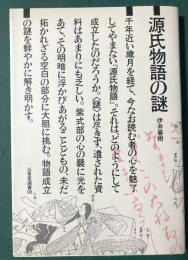 源氏物語の謎
伊井春樹
千年近い歳月を経て、今なお読む者の心を魅了
してやまない『源氏物語』。それはどのようにして
成立したのだろうか。〈謎〉は尽きず、遺された資
料はあまりにも乏しい。紫式部の心の襞に光を
あて、その明暗に浮かびあがることどもの、未だ
拓かれざる空白の部分に大胆に挑む。物語成立
の謎を鮮やかに解き明かす。
三省堂選書98